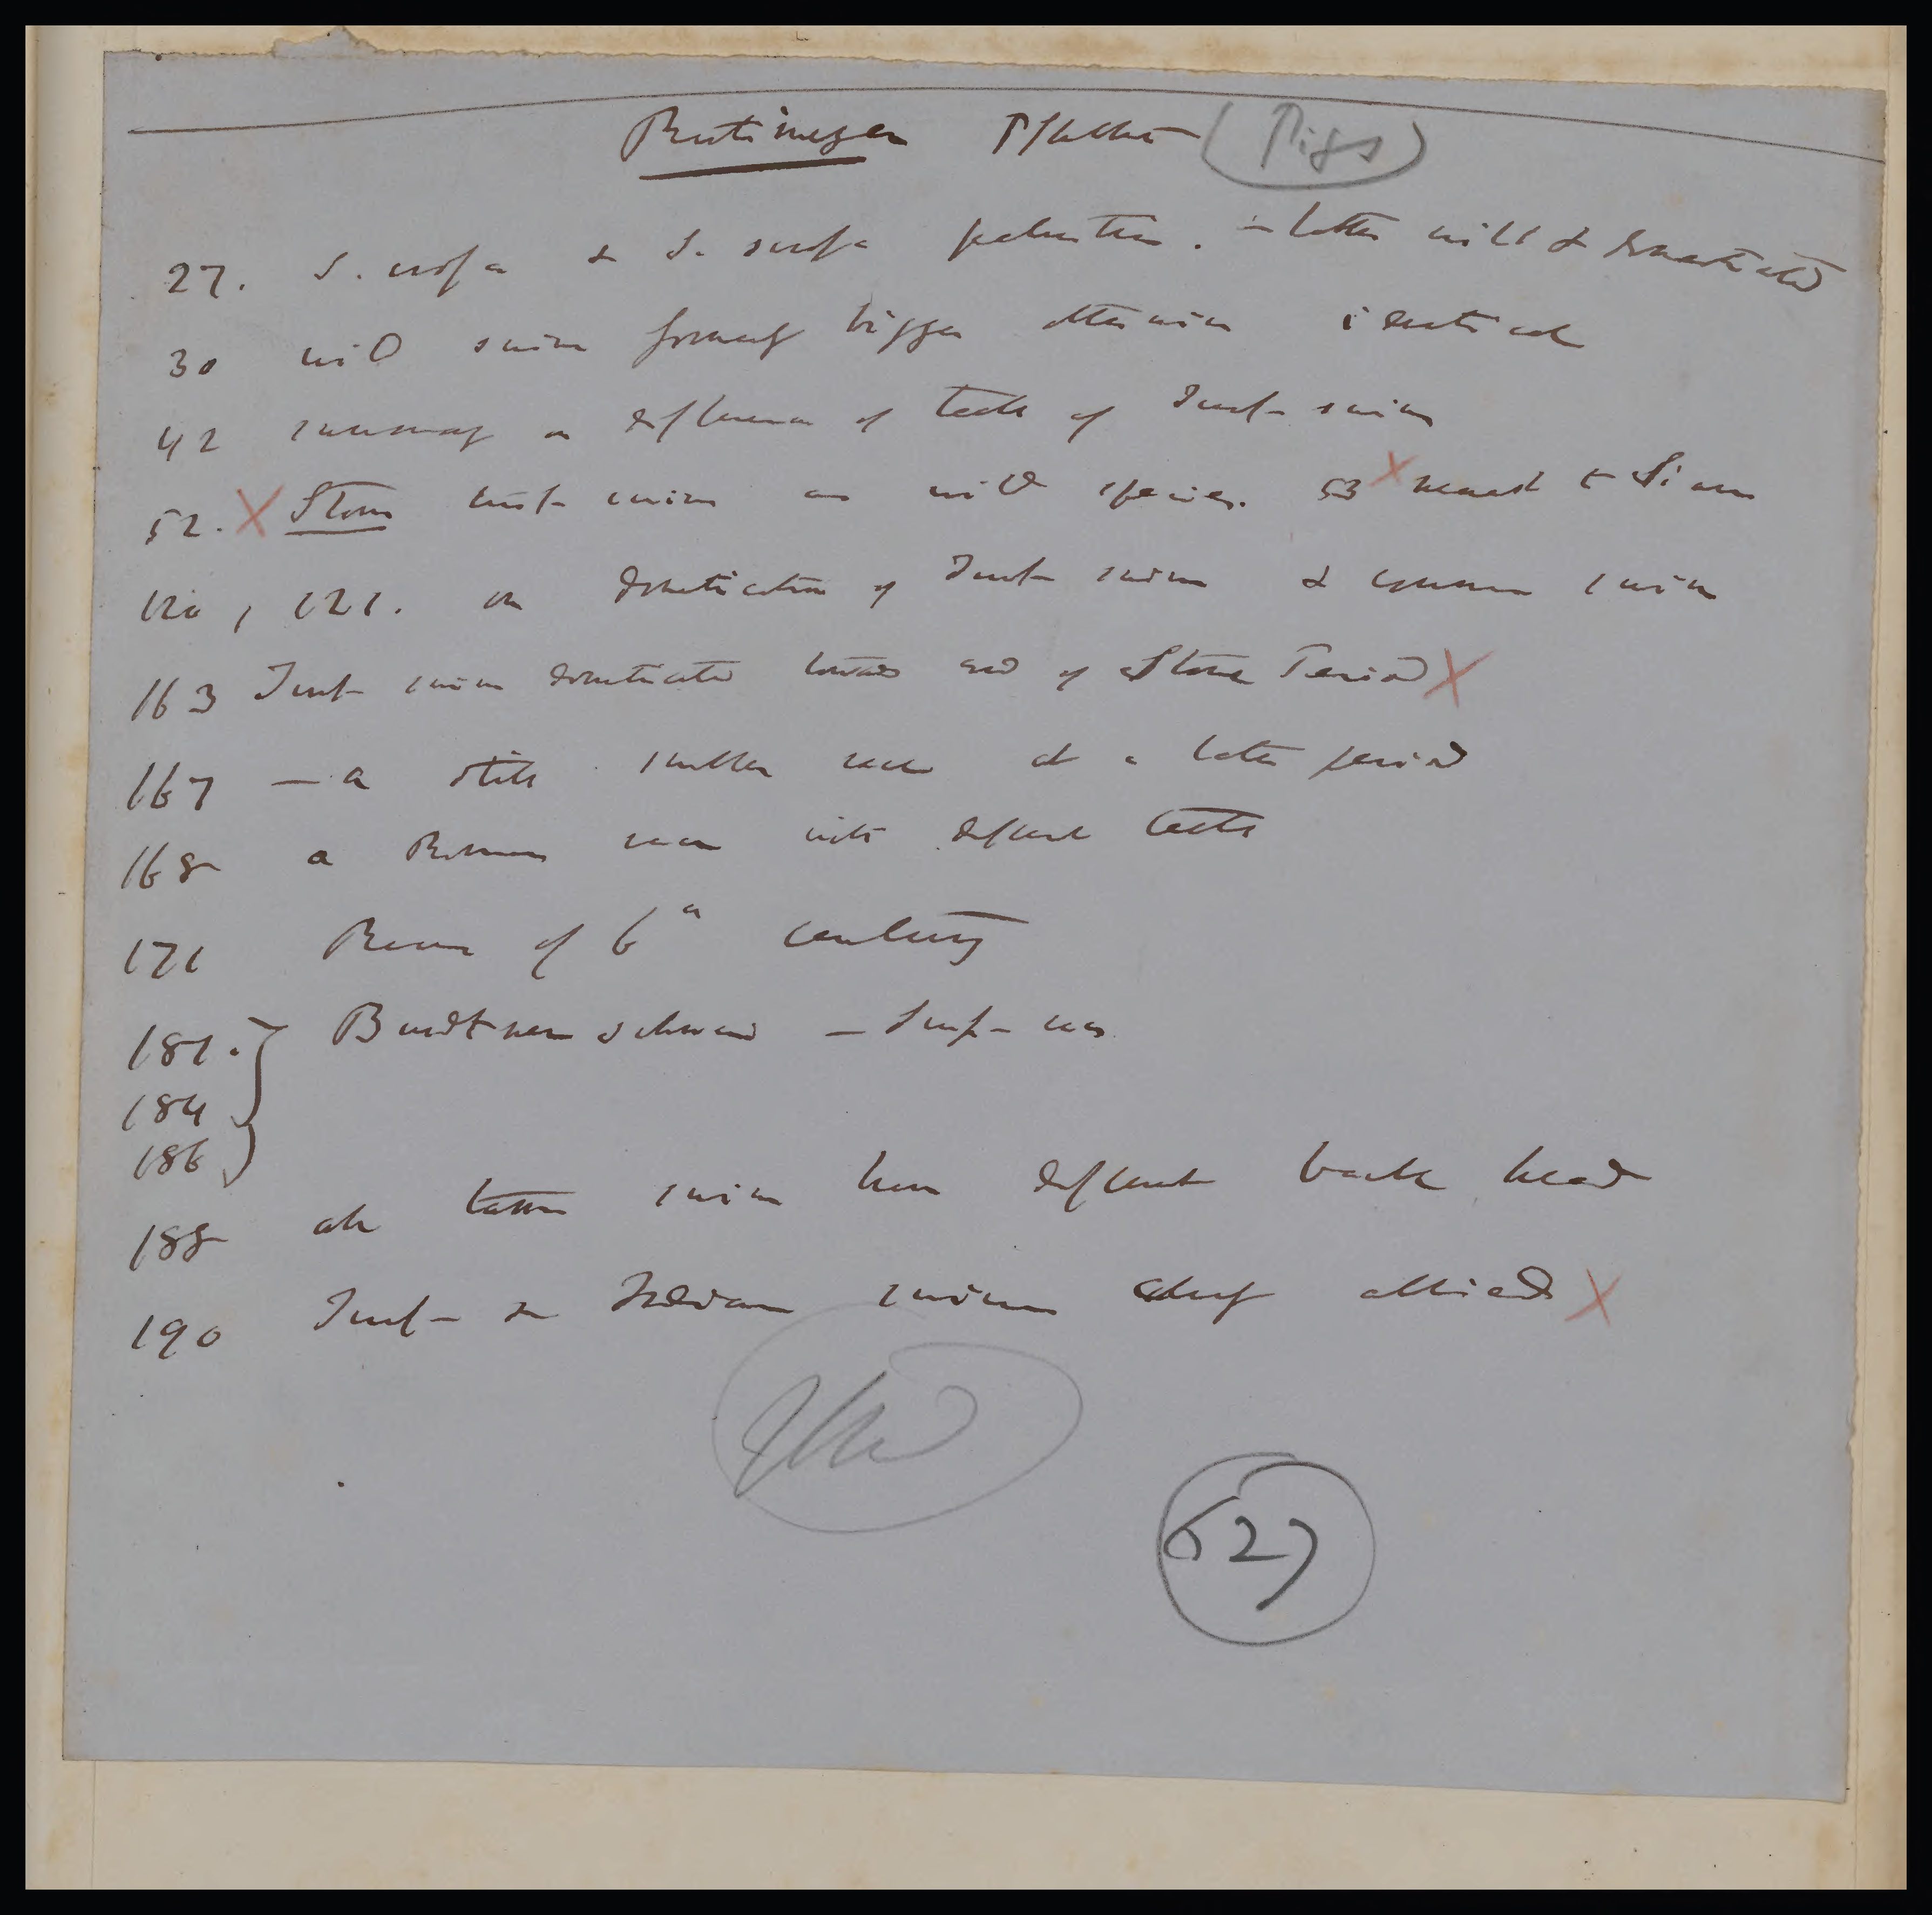 Rutimeyer Pfahlbau (Pigs)
27. S. scrofa & S. scrofa palustris. — latter wild & domesticated
30 wild swine formerly bigger otherwise identical
42 summary on difference of teeth of Turf-swine
52. X Stone turf-swine as wild species. 53 X nearest to Siam
120, 121. on domestication of Turf-swine & common swine
163 Turf-swine domesticated towards end of Stone Period X
167 — a still smaller race at a later period
168 a Roman race with different teeth
171 Remains of 6th century
181. Bundtnerschwein — Turf-race
184
186
188 all tame swine have different back head
190 Turf- & Indian swine closely allied X
527